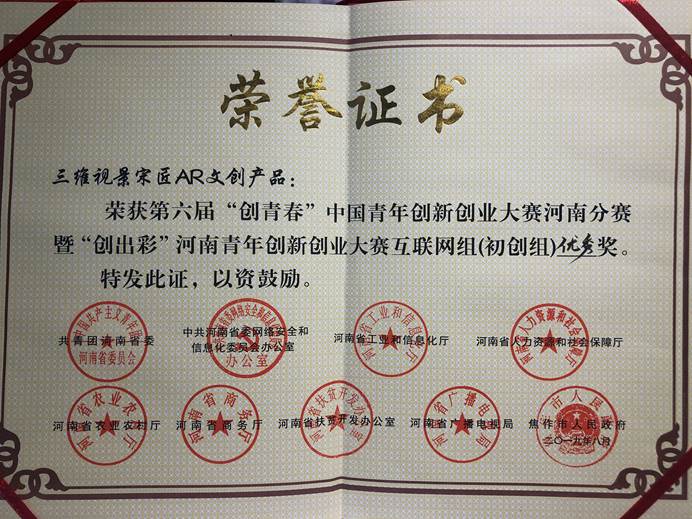 荣誉证书
三维视景宋匠AR文创产品：
荣获第六届“创青春”中国青年创新创业大赛河南分赛
暨“创出彩”河南青年创新创业大赛互联网组(初创组)优秀奖。
特发此证，以资鼓励。
共青团河南省委
中共河南省委网络安全和
信息化委员会办公室
河南省工业和信息化厅
河南省人力资源和社会保障厅
中国共产主义青年团
河南省委员会
办公室
河南省工业和信息化厅
河南省人力资源和社会保障厅
河南省农业农村厅
河南省商务厅
河南省扶贫开发办公室
河南省广播电视局
焦作市人民政府
二〇一九年八月
河南省农业农村厅
河南省商务厅
河南省扶贫开发办公室
河南省广播电视局
焦作市人民政府